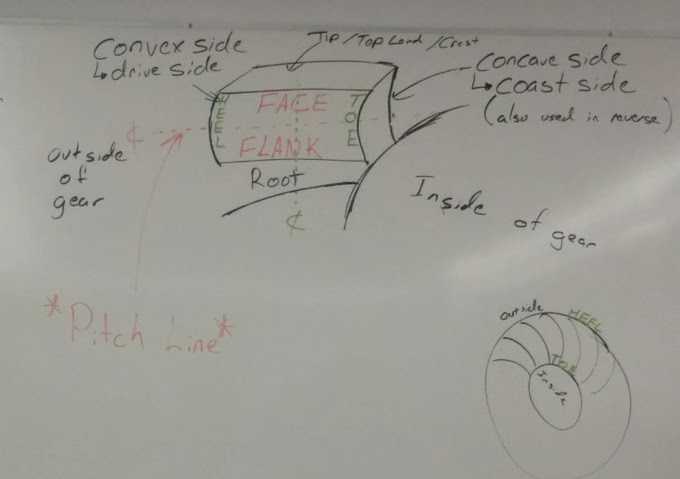 Convex side
↳ drive side
Tip/Top Land/Crest
Concave side
↳ Coast side
(also used in reverse)
HEEL
FACE
TOE
FLANK
℄
Outside
of
gear
Root
℄
Inside
of
gear
*Pitch Line*
Outside
HEEL
TOE
Inside